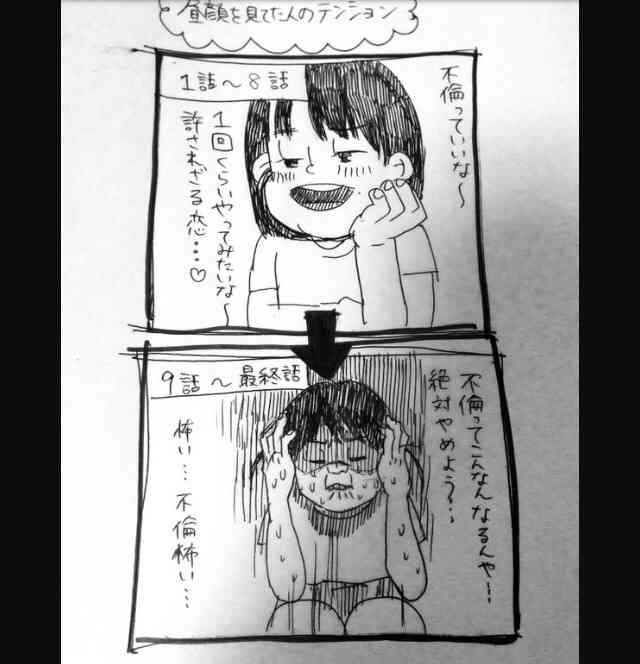 昼顔を見てた人のテンション
1話〜8話
不倫っていいな〜
1回くらいやってみたいな〜
許されざる恋…♡
9話〜最終話
不倫ってこんなんなるんや…
絶対やめよう…
怖い…不倫怖い…